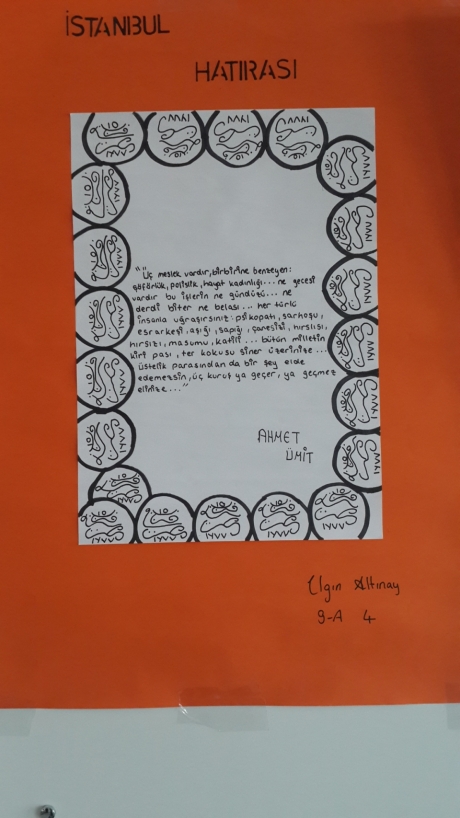 İSTANBUL
HATIRASI
"Üç meslek vardır, birbirine benzeyen:
şöförlük, polislik, hayat kadınlığı... ne gecesi
vardır bu işlerin ne gündüzü... ne
derdi biter ne belası... her türlü
insanla uğraşırsınız: psikopatı, sarhoşu,
esrarkeşi, aşığı, sapığı, çaresizi, hırslısı,
hırsızı, masumu, katili... bütün milletin
kiri pası, ter kokusu siner üzerinize...
üstelik parasından da bir şey elde
edemezsin, üç kuruş ya geçer, ya geçmez
elinize..."
AHMET
ÜMİT
Ilgın Altınay
9-A 4